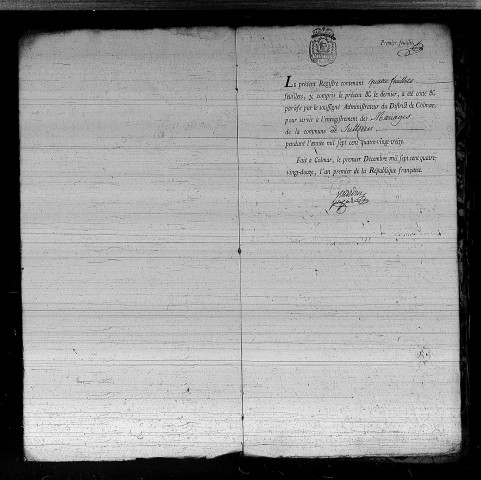 Premier feuillet
LE présent Registre contenant quatre feuilles
feuillets, y compris le présent & le dernier, a été coté &
paraphé par le soussigné Administrateur du District de Colmar,
pour servir à l'enregistrement des Mariages
de la commune de
pendant l'année mil sept cent quatre-vingt-treize.
Fait à Colmar, le premier Décembre mil sept cent quatre-
vingt-douze, l'an premier de la République française.